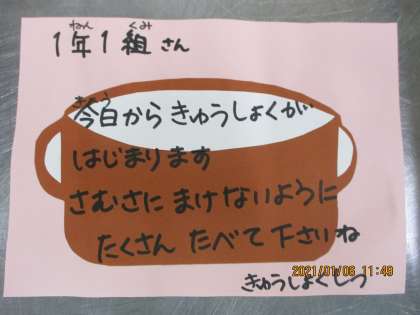 ねん くみ
1年1組さん
きょう
今日からきゅうしょくが
はじまります
さむさにまけないように
たくさんたべて下さいね
きゅうしょくしつ
2021/01/06 11:49